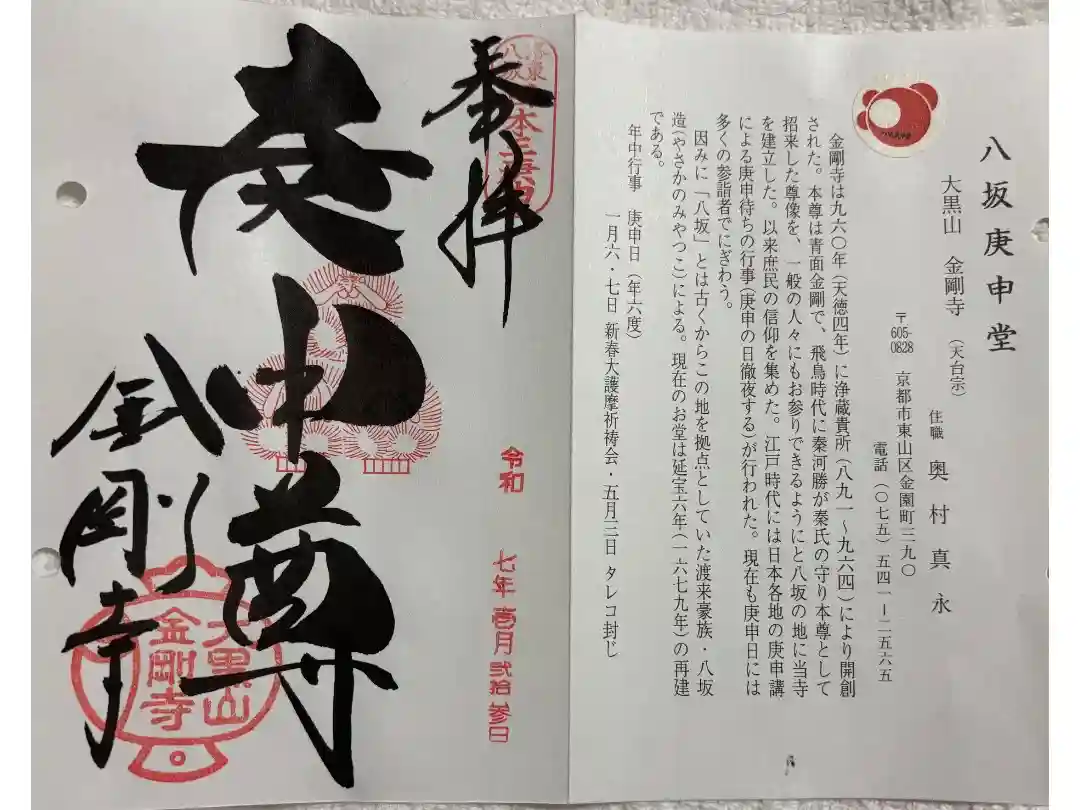 八坂庚申堂
大黒山 金剛寺（天台宗）
住職 奥村真永
〒605-0828 京都市東山区金園町三九〇
電話（〇七五）五四一ー二五六五
金剛寺は九六〇年（天徳四年）に浄蔵貴所（八九一～九六四）により開創
された。本尊は青面金剛で、飛鳥時代に秦河勝が秦氏の守り本尊として
招来した尊像を、一般の人々にもお参りできるようにと八坂の地に当寺
を建立した。以来庶民の信仰を集めた。江戸時代には日本各地の庚申講
による庚申待ちの行事（庚申の日徹夜する）が行われた。現在も庚申日には
多くの参詣者でにぎわう。
因みに「八坂」とは古くからこの地を拠点としていた渡来豪族・八坂
造（やさかのみやつこ）による。現在のお堂は延宝六年（一六七九年）の再建
である。
年中行事 庚申日（年六度）
一月六・七日 新春大護摩祈祷会・五月三日 タレコ封じ
奉拝
令和 七年 壱月 弐拾参日
庚申尊
金剛寺
大黒山
金剛寺